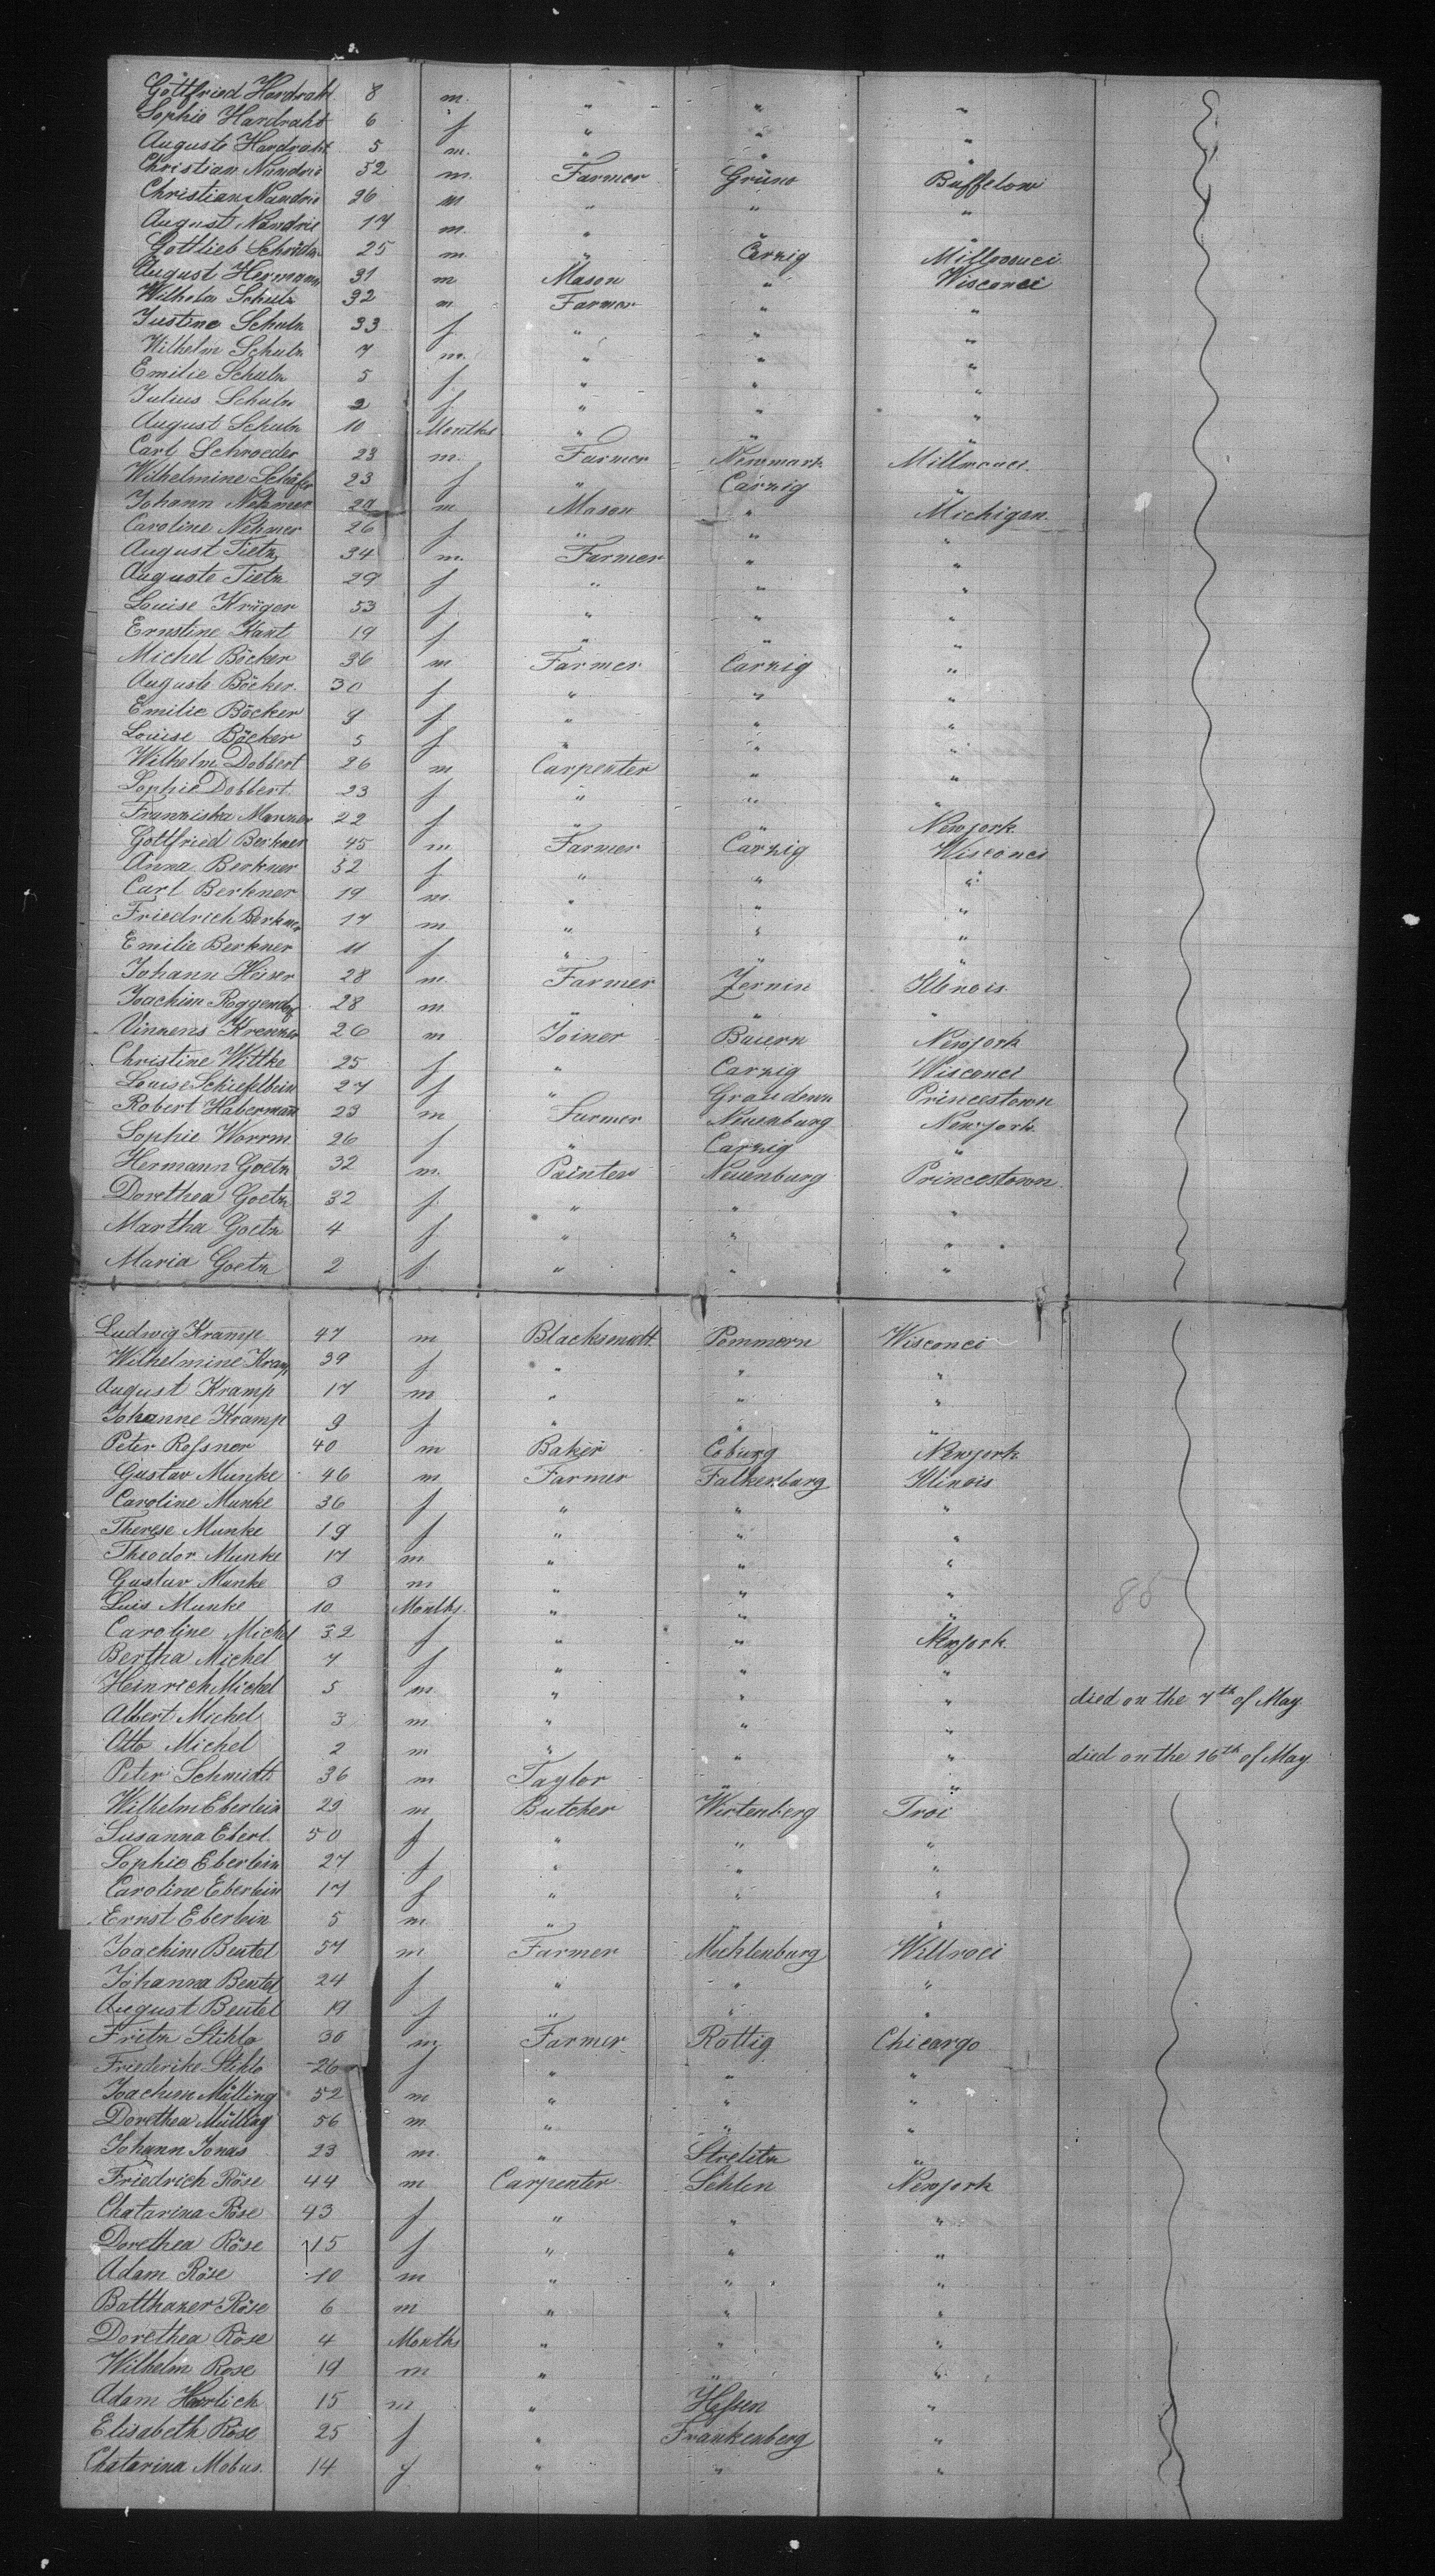 Gottfried Hardraht 8 m. " " "
Sophie Hardraht 6 f " " "
Auguste Hardraht 5 m. " " "
Christian Nandrie 52 m. Farmer Grüno Buffelow
Christian Nandrie 26 m " " "
August Nandrie 17 m. " " "
Gottlieb Schröder 25 m. " Carzig Millwouci
August Hermann 31 m Mason " Wisconci
Wilhelm Schulz 32 m Farmer " "
Justine Schulz 33 f " " "
Wilhelm Schulz 7 m. " " "
Emilie Schulz 5 f " " "
Julius Schulz 2 f " " "
August Schulz 10 Months " " "
Carl Schroeder 23 m. Farmer Newmark Millwouci
Wilhelmine Schäfer 23 f " Carzig "
Johann Nehmer 29 m Mason " Michigan
Caroline Nehmer 26 f " " "
August Tietz 34 m. Farmer " "
Auguste Tietz 29 f " " "
Louise Krüger 53 f " " "
Ernstine Kant 19 f " " "
Michel Böcker 36 m Farmer Carzig "
Auguste Böcker 30 f " " "
Emilie Böcker 9 f " " "
Louise Böcker 5 f " " "
Wilhelm Dobbert 26 m Carpenter " "
Sophie Dobbert 23 f " " "
Franziska Manner 22 f " " Newyork
Gottfried Berkner 45 m Farmer Carzig Wisconci
Anna Berkner 52 f " " "
Carl Berkner 19 m. " " "
Friedrich Berkner 17 m " " "
Emilie Berkner 11 f " " "
Johann Heiser 28 m. Farmer Zernin Illinois
Joachim Roggendorf 28 m " " "
Vinzens Krenzer 26 m Joiner Baiern Newyork
Christine Wittke 25 f " Carzig Wisconci
Louise Schiefelbein 27 f " Graudenz Princestown
Robert Haberman 23 m Farmer Neuenburg Newyork
Sophie Worrm 26 f " Carzig "
Hermann Goetz 32 m. Painter Neuenburg Princestown
Dorethea Goetz 32 f " " "
Martha Goetz 4 f " " "
Maria Goetz 2 f " " "
Ludwig Kramp 47 m Blacksmdtt Pommern Wisconci
Wilhelmine Kramp 39 f " " "
August Kramp 17 m " " "
Johanne Kramp 9 f " " "
Peter Roßner 40 m Baker Coburg Newyork
Gustav Munke 46 m Farmer Falkenburg Illinois
Caroline Munke 36 f " " "
Therese Munke 19 f " " "
Theodor Munke 17 m " " "
Gustav Munke 3 m " " "
Luis Munke 10 Months " " "
Caroline Michel 32 f " " Newyork
Bertha Michel 7 f " " "
Heinrich Michel 5 m " " " died on the 7th of May
Albert Michel 3 m " " "
Otto Michel 2 m " " " died on the 16th of May
Peter Schmidt 36 m Taylor " "
Wilhelm Eberlein 29 m Butcher Wirtenberg Troi
Susanna Eberl. 50 f " " "
Sophie Eberlein 27 f " " "
Caroline Eberlein 17 f " " "
Ernst Eberlein 5 m " " "
Joachim Beutel 57 m Farmer Mecklenburg Willroci
Johanna Beutel 24 f " " "
August Beutel 19 f " " "
Fritz Stihlo 30 m Farmer Rottig Chicargo
Friederike Stihlo 26 f " " "
Joachim Mölling 52 m " " "
Dorethea Mölling 56 m " " "
Johann Jonas 23 m. " Strelitz "
Friedrich Röse 44 m Carpenter Sehlen Newyork
Chatarina Röse 43 f " " "
Dorethea Röse 15 f " " "
Adam Röse 10 m " " "
Batthaner Röse 6 m " " "
Dorethea Röse 4 Months " " "
Wilhelm Rose 19 m " " "
Adam Harlich 15 m " Heßen "
Elisabeth Röse 25 f " Frankenberg "
Chatarina Mobus 14 f " " "